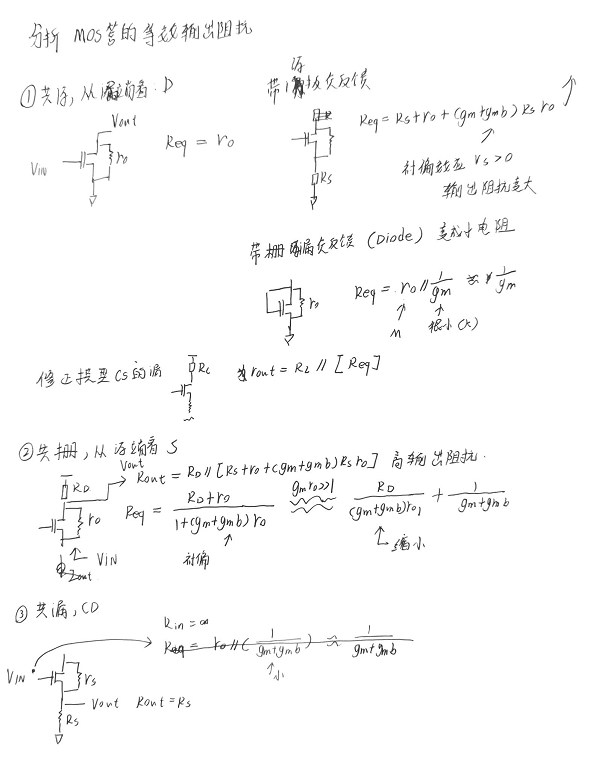 分析 MOS管的等效输出阻抗
① 共源，从漏端看. D
Vout
VIN
ro
Req = ro
带源极负反馈
RS
Req = Rs + ro + (gm+gmb) Rs ro
衬偏效应 Vs > 0
输出阻抗变大
带栅漏负反馈 (Diode) 变成小电阻
ro
Req = ro // 1/gm ≈ 1/gm
M 很小(K)
修正模型 CS的漏
RL
rout = RL // [Req]
② 共栅，从源端看 S
Vout
Rout = RD // [Rs+ro+(gm+gmb) Rs ro] 高输出阻抗.
RD
ro
VIN
Zout
Req = (RD + ro) / (1+(gm+gmb) ro) gmro>>1 ≈ RD / ((gm+gmb) ro) + 1 / (gm+gmb)
衬偏
缩小
③ 共漏, CD
Rin = ∞
Req = ro // (1 / (gm+gmb)) ≈ 1 / (gm+gmb)
小
VIN
rs
Vout Rout = Rs
Rs